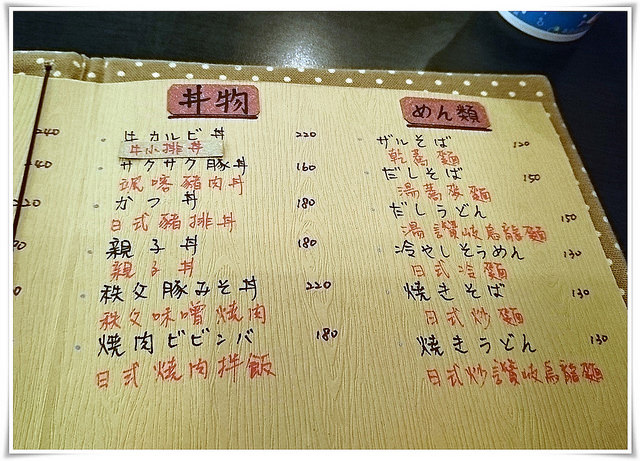 丼物
牛カルビ丼 220
牛小排丼
サクサク豚丼 160
颯喀豬肉丼
かつ丼 180
日式豬排丼
親子丼 180
親子丼
秩父豚みそ丼 220
秩父味噌燒肉
焼肉ビビンバ 180
日式燒肉拌飯
めん類
ザルそば 120
乾蕎麵
だしそば 150
湯蕎麥麵
だしうどん 150
湯讚岐烏龍麵
冷やしそうめん 130
日式冷麵
焼きそば 130
日式炒麵
焼きうどん 130
日式炒讚岐烏龍麵
240
240